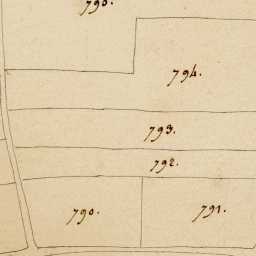 795.
794.
793.
792.
790. 791.